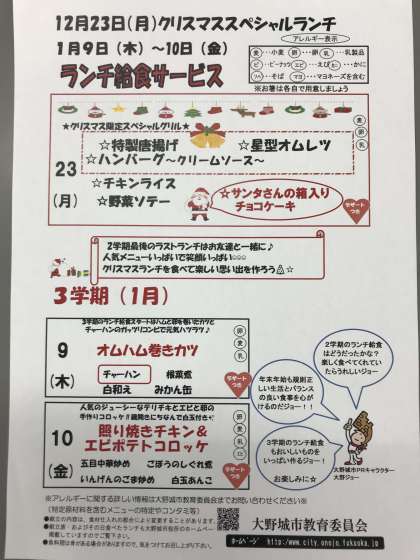 12月23日(月)クリスマススペシャルランチ
1月9日(木)～10日(金)
ランチ給食サービス
アレルギー表示
麦…小麦 卵…卵 乳…乳製品
ピ…ピーナッツ エビ…えび か…かに
ソバ…そば マヨ…マヨネーズを含む
※お箸は各自で用意しましょう
★クリスマス限定スペシャルグリル★
麦
卵
乳
23
(月)
☆特製唐揚げ
☆星型オムレツ
☆ハンバーグ～クリームソース～
☆チキンライス
☆野菜ソテー
☆サンタさんの箱入り
チョコケーキ
デザート
つき
2学期最後のラストランチはお友達と一緒に♪
人気メニューいっぱいで笑顔いっぱい○○○
クリスマスランチを食べて楽しい思い出を作ろう☆
3学期(1月)
3学期のランチ給食スタートはハムと卵を巻いたカツと
チャーハンのガッツリコンビで元気ハツラツ♪
9
(木)
オムハム巻きカツ
チャーハン 根菜煮
白和え みかん缶
卵
麦
乳
デザート
つき
人気のジューシーなテリチキとエビと卵の
手作りコロッケ♯鏡開きにちなんで白玉付き♪
10
(金)
照り焼きチキン&
エビポテトコロッケ
五目中華炒め ごぼうのしぐれ煮
いんげんのごま炒め 白玉あんこ
卵
麦
乳
デザート
つき
2学期のランチ給食
はどうだったかな?
楽しく食べてくれてい
たらうれしいジョー!
年末年始も規則正
しい生活とバランス
の良い食事を心が
けるのだジョー!!
3学期のランチ給食
もおいしいものを
いっぱい作るジョー!
お楽しみに☆
大野城市PRキャラクター
大野ジョー
※アレルギーに関する詳しい情報は大野城市教育委員会までお問い合わせください※
(特定原材料を含むメニューの特定やコンタミ等)
大野城市教育委員会
ホームページ http://www.city.onojo.fukuoka.jp